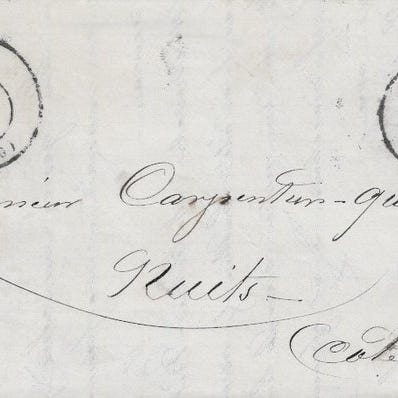 nsieur Carpentier-Gu
Nuits-
(Côte